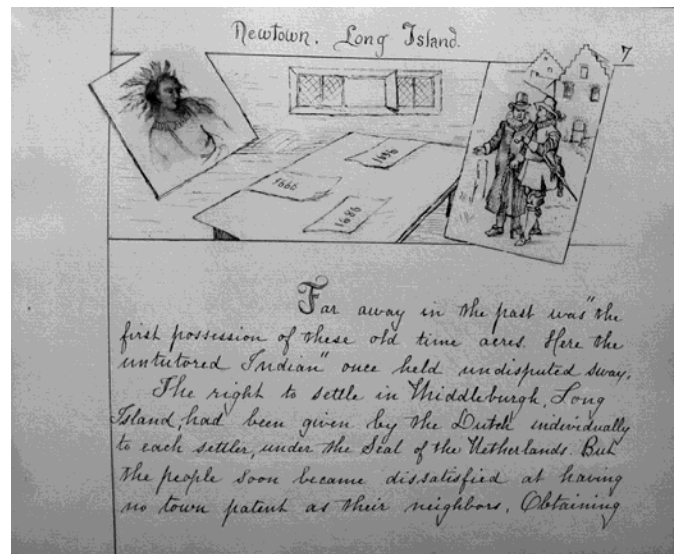 Newtown. Long Island.
7
1666
1686
Far away in the past was "the
first possession of these old time acres. Here the
untutored Indian" once held undisputed sway.
The right to settle in Middleburgh, Long
Island, had been given by the Dutch individually
to each settler, under the Seal of the Netherlands. But
the people soon became dissatisfied at having
no town patent as their neighbors. Obtaining